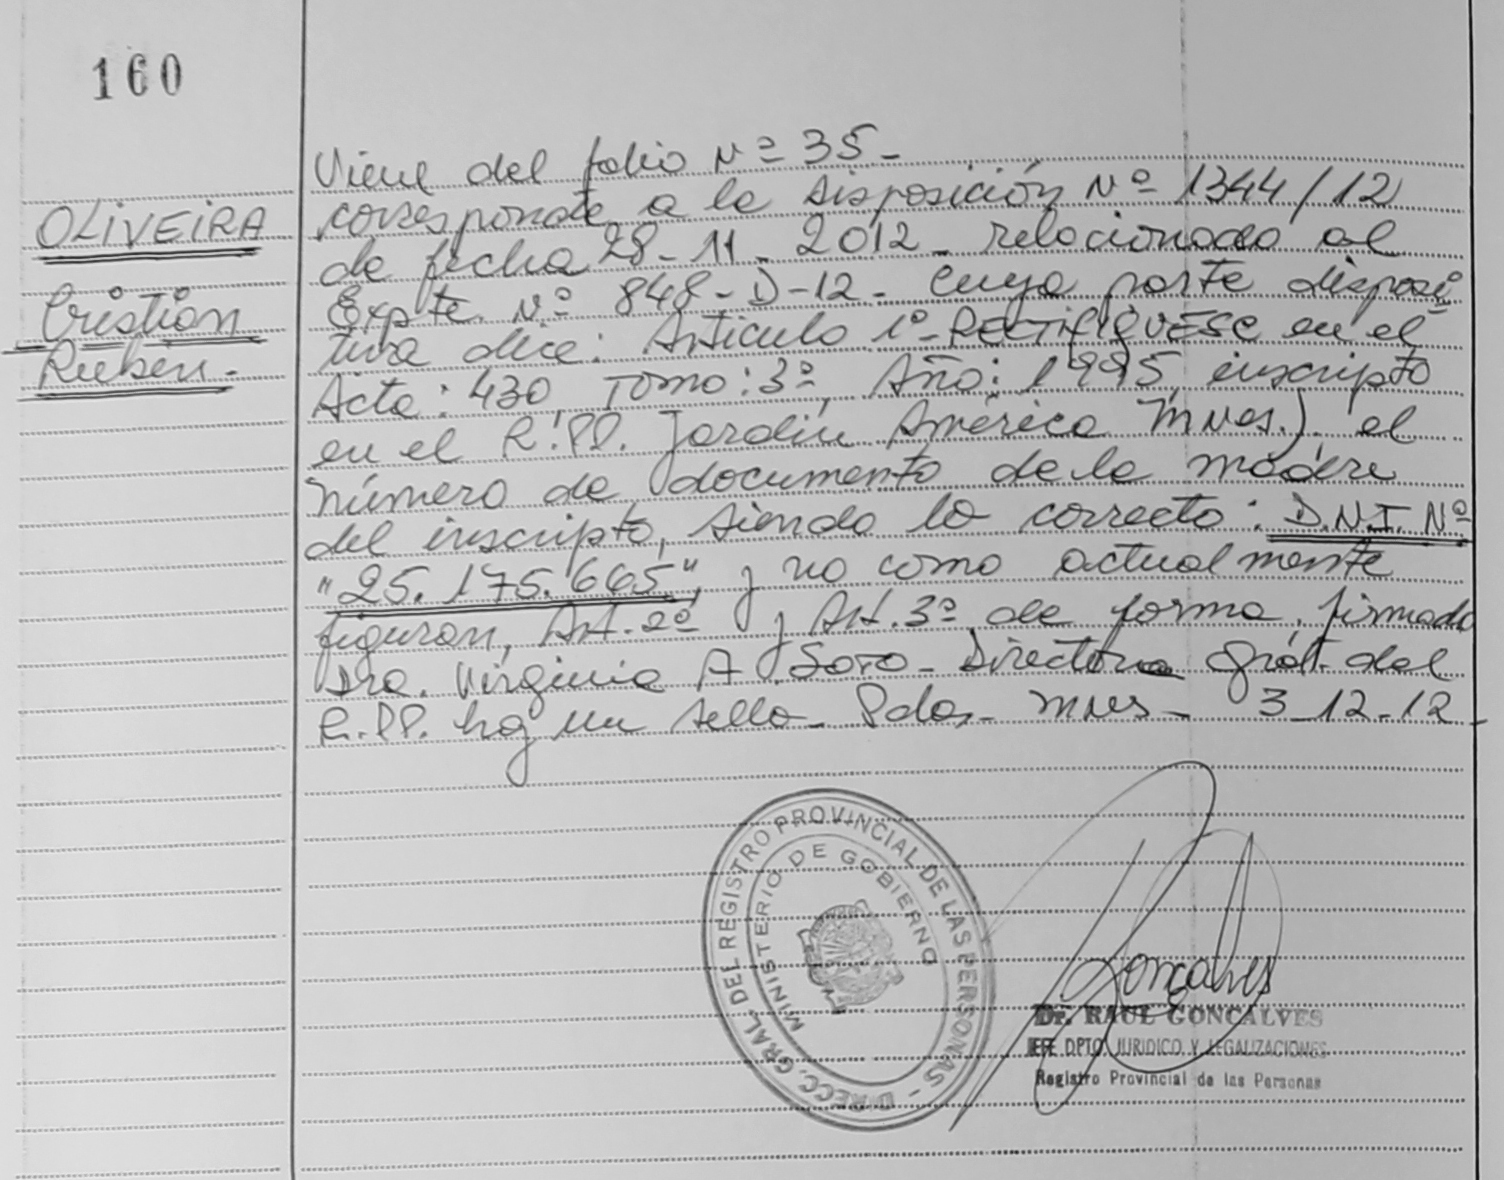 160
OLIVEIRA
Cristian
Rubén.-
Viene del folio Nº 35-
corresponde a la disposición Nº 1344/12
de fecha 28-11-2012- relacionado al
Expte. Nº 848-D-12- cuya parte disposi
tiva dice: Artículo 1º- RECTIFIQUESE en el
Acta: 430, Tomo: 3º, Año: 1995, inscripto
en el R.PP. Jardín América Mnes.), el
número de documento de la madre
del inscripto, siendo lo correcto: D.N.I. Nº
"25.175.665", y no como actualmente
figuran, Art. 2º y Art. 3º de forma, firmado
Dra. Virginia A. Soto- Directora Gral. del
R.PP. hay un sello- Pdas- Mnes- 3-12-12-
DIRECC. GRAL. DEL REGISTRO PROVINCIAL DE LAS PERSONAS -
MINISTERIO DE GOBIERNO
Goncalves
Dr. RAUL GONCALVES
JEFE DPTO. JURIDICO Y LEGALIZACIONES
Registro Provincial de las Personas